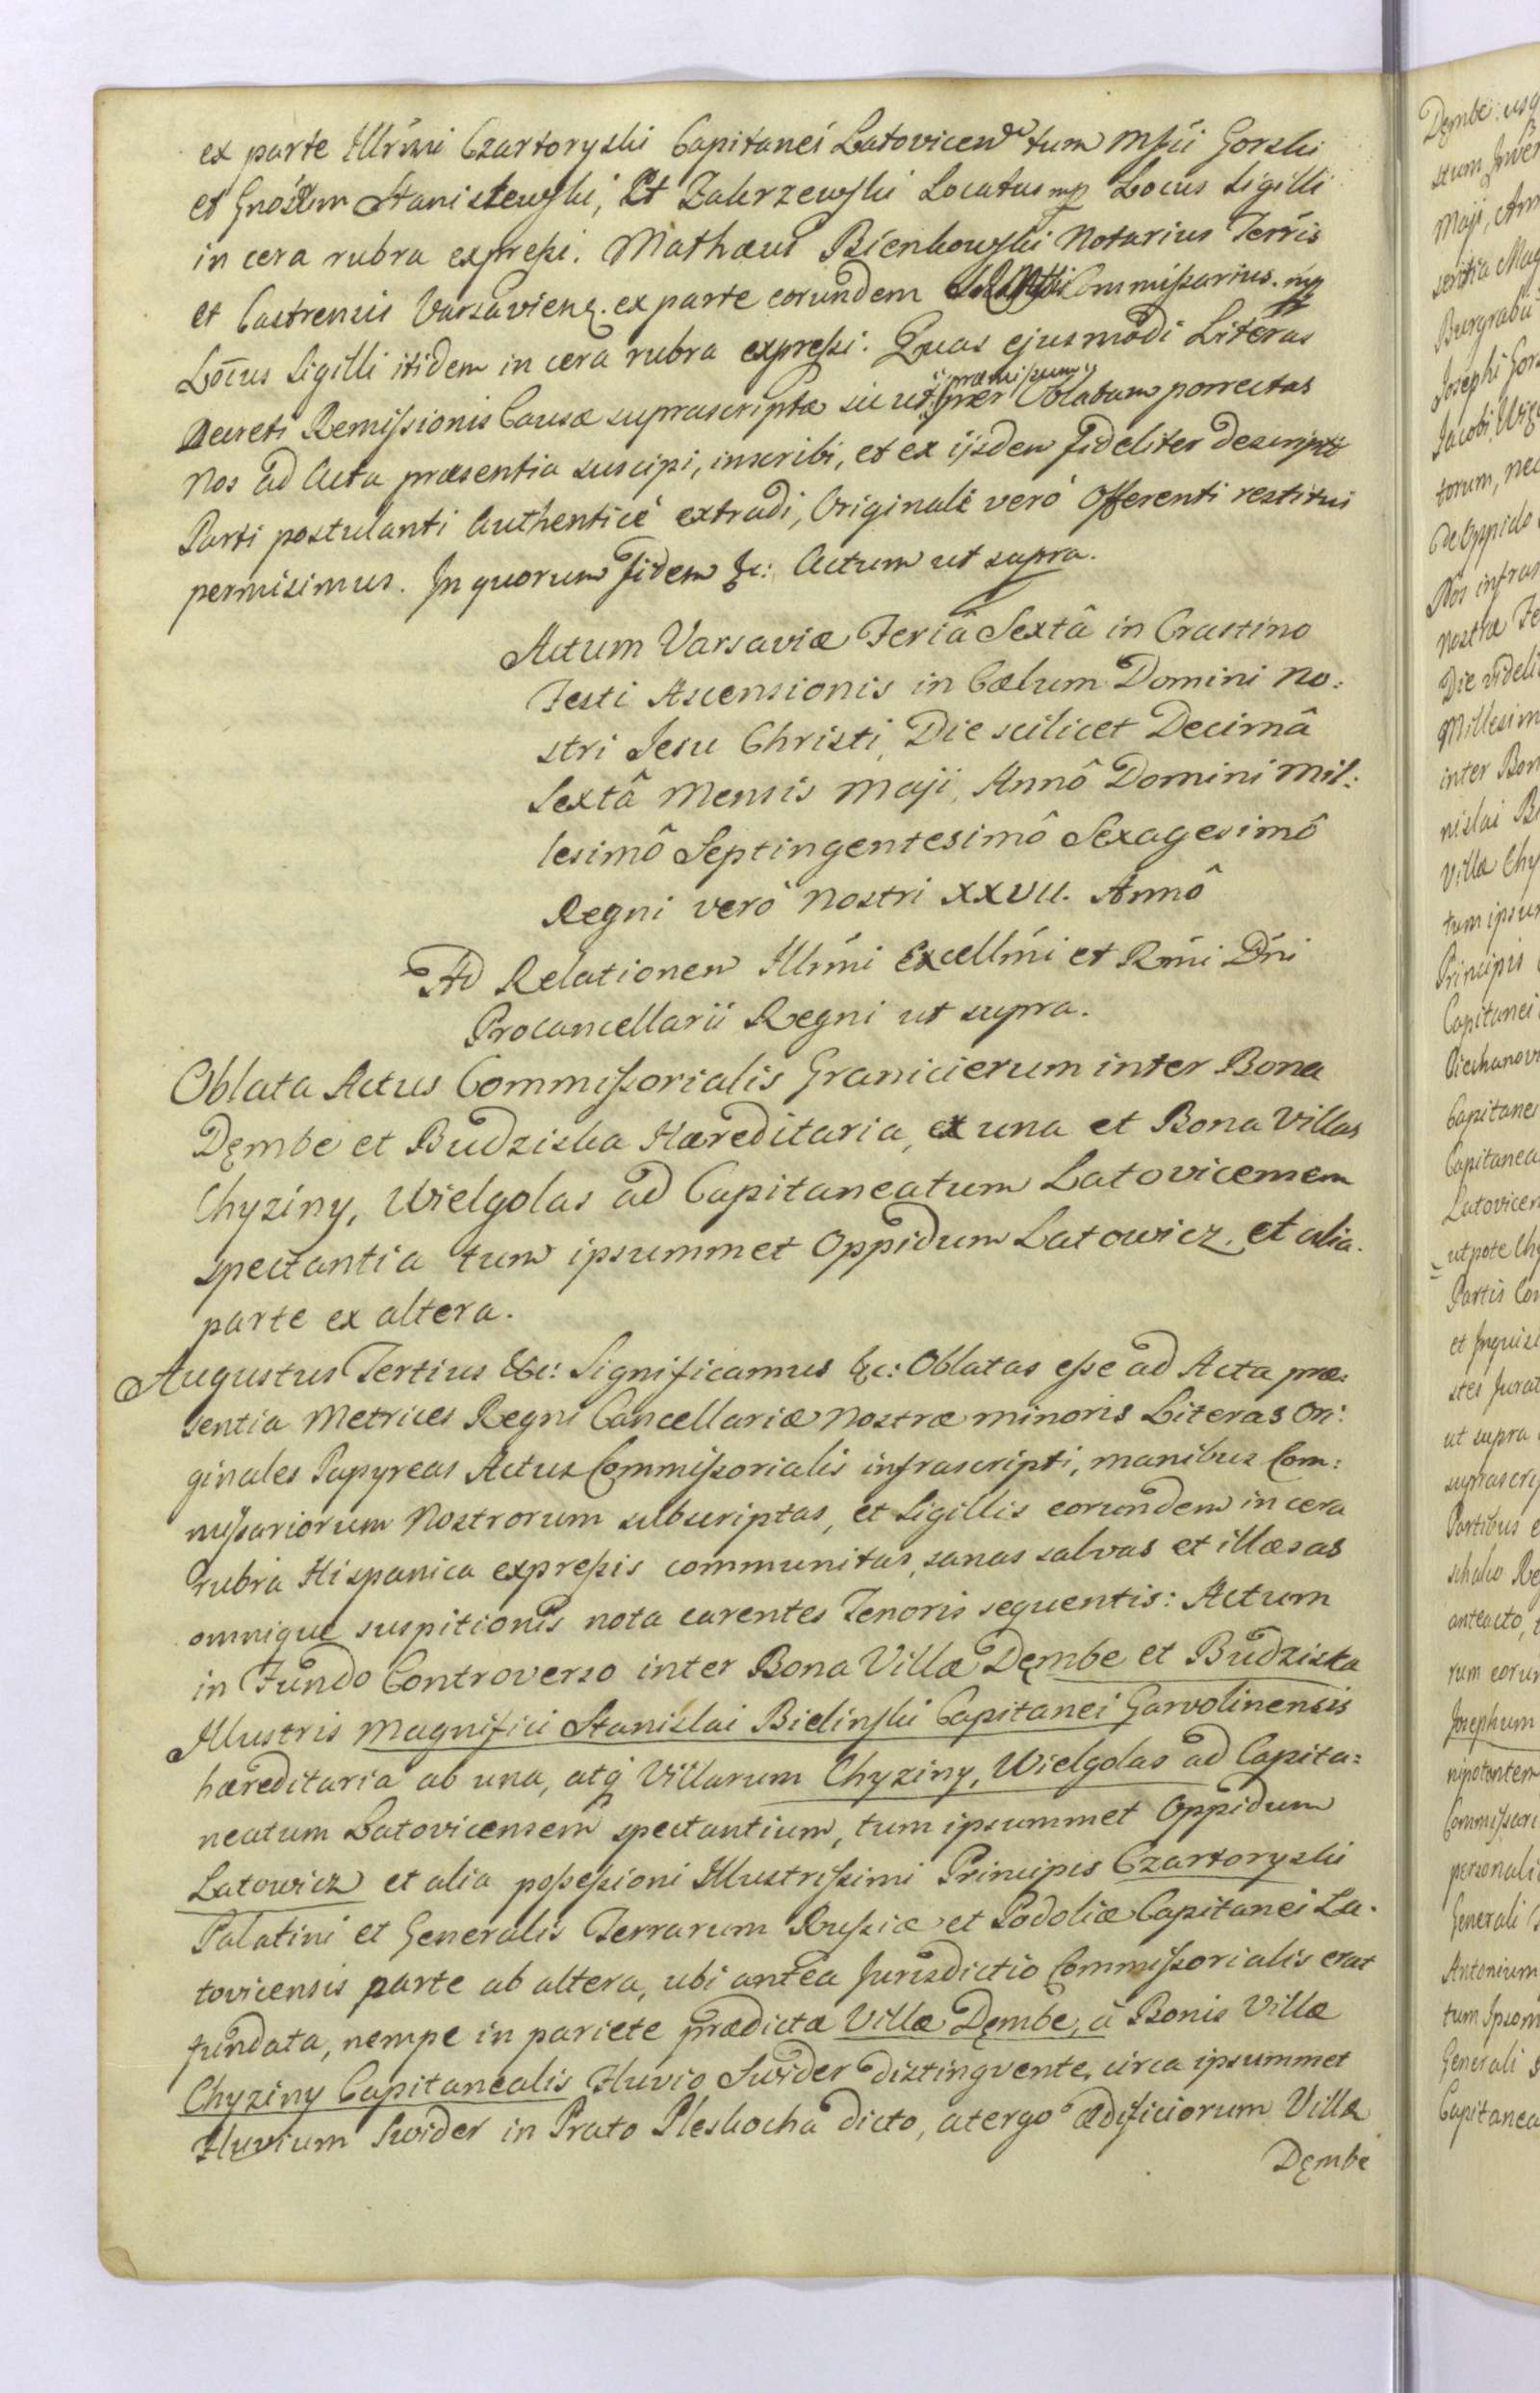 ex parte Illr̃mi Czartoryski Capitanei Latovicen̄ tum Mfci Gorski
et Gnosum Stanislewski, Et Zakrzewski Locatus mp Locus Sigilli
in cera rubra expreſsi. Mathæus Bienkowski Notarius Terris
et Castrensis Varsavien̄. ex parte eorundem Commiſsarius. mp
Locus Sigilli itidem in cera rubra expreſsi. Quas ejusmodi Literas
Decreti Remiſsionis Causæ suprascriptæ sicut præmiſsum per Oblatam porrectas
Nos ad Acta præsentia suscipi, inscribi, et ex ijsdem fideliter descripto
Parti postulanti Authenticè extradi, Originale verò Offerenti restitui
permisimus. In quorum fidem &c: Actum ut supra.
Actum Varsaviæ Feriâ Sextâ in Crastino
Festi Ascensionis in Cælum Domini No:
stri Jesu Christi, Die scilicet Decimâ
Sextâ Mensis Maji, Annô Domini Mil:
lesimô Septingentesimô Sexagesimô
Regni verò Nostri XXVII. Annô
Ad Relationem Illmi Excellmi et Rmi Dni
Procancellarii Regni ut supra.
Oblata Actus Commiſsorialis Granicierum inter Bona
Dęmbe et Budziska Hæreditaria, ex una et Bona Villas
Chyziny, Wielgolas ad Capitaneatum Latovicensem
spectantia tum ipsummet Oppidum Latowicz, et alia
parte ex altera.
Augustus Tertius &c: Significamus &c: Oblatas eſse ad Acta præ:
sentia Metrices Regni Cancellariæ Nostræ minoris Literas Ori:
ginales Papyreas Actus Commiſsorialis infrascripti, manibus Com:
miſsariorum Nostrorum subscriptas, et Sigillis eorundem in cera
rubra Hispanica expreſsis communitas, sanas salvas et illæsas
omnique suspitionis nota carentes Tenoris sequentis: Actum
in Fundo Controverso inter Bona Villæ Dęmbe et Budziska
Illustris Magnifici Stanislai Bielinski Capitanei Garvolinensis
hæreditaria ab una, atq̨ Villarum Chyziny, Wielgolas ad Capita:
neatum Latovicensem spectantium, tum ipsummet Oppidum
Latowicz et alia poſseſsioni Illustriſsimi Principis Czartoryski
Palatini et Generalis Terrarum Ruſsiæ et Podoliæ Capitanei La:
tovicensis parte ab altera, ubi antea Jurisdictio Commiſsorialis erat
fundata, nempe in pariete prædictæ Villæ Dęmbe, à Bonis Villæ
Chyziny Capitanealis Fluvio Swider distingvente, circa ipsummet
Fluvium Swider in Prato Pleskocha dicto, a tergo ædificiorum Villæ
Dęmbe